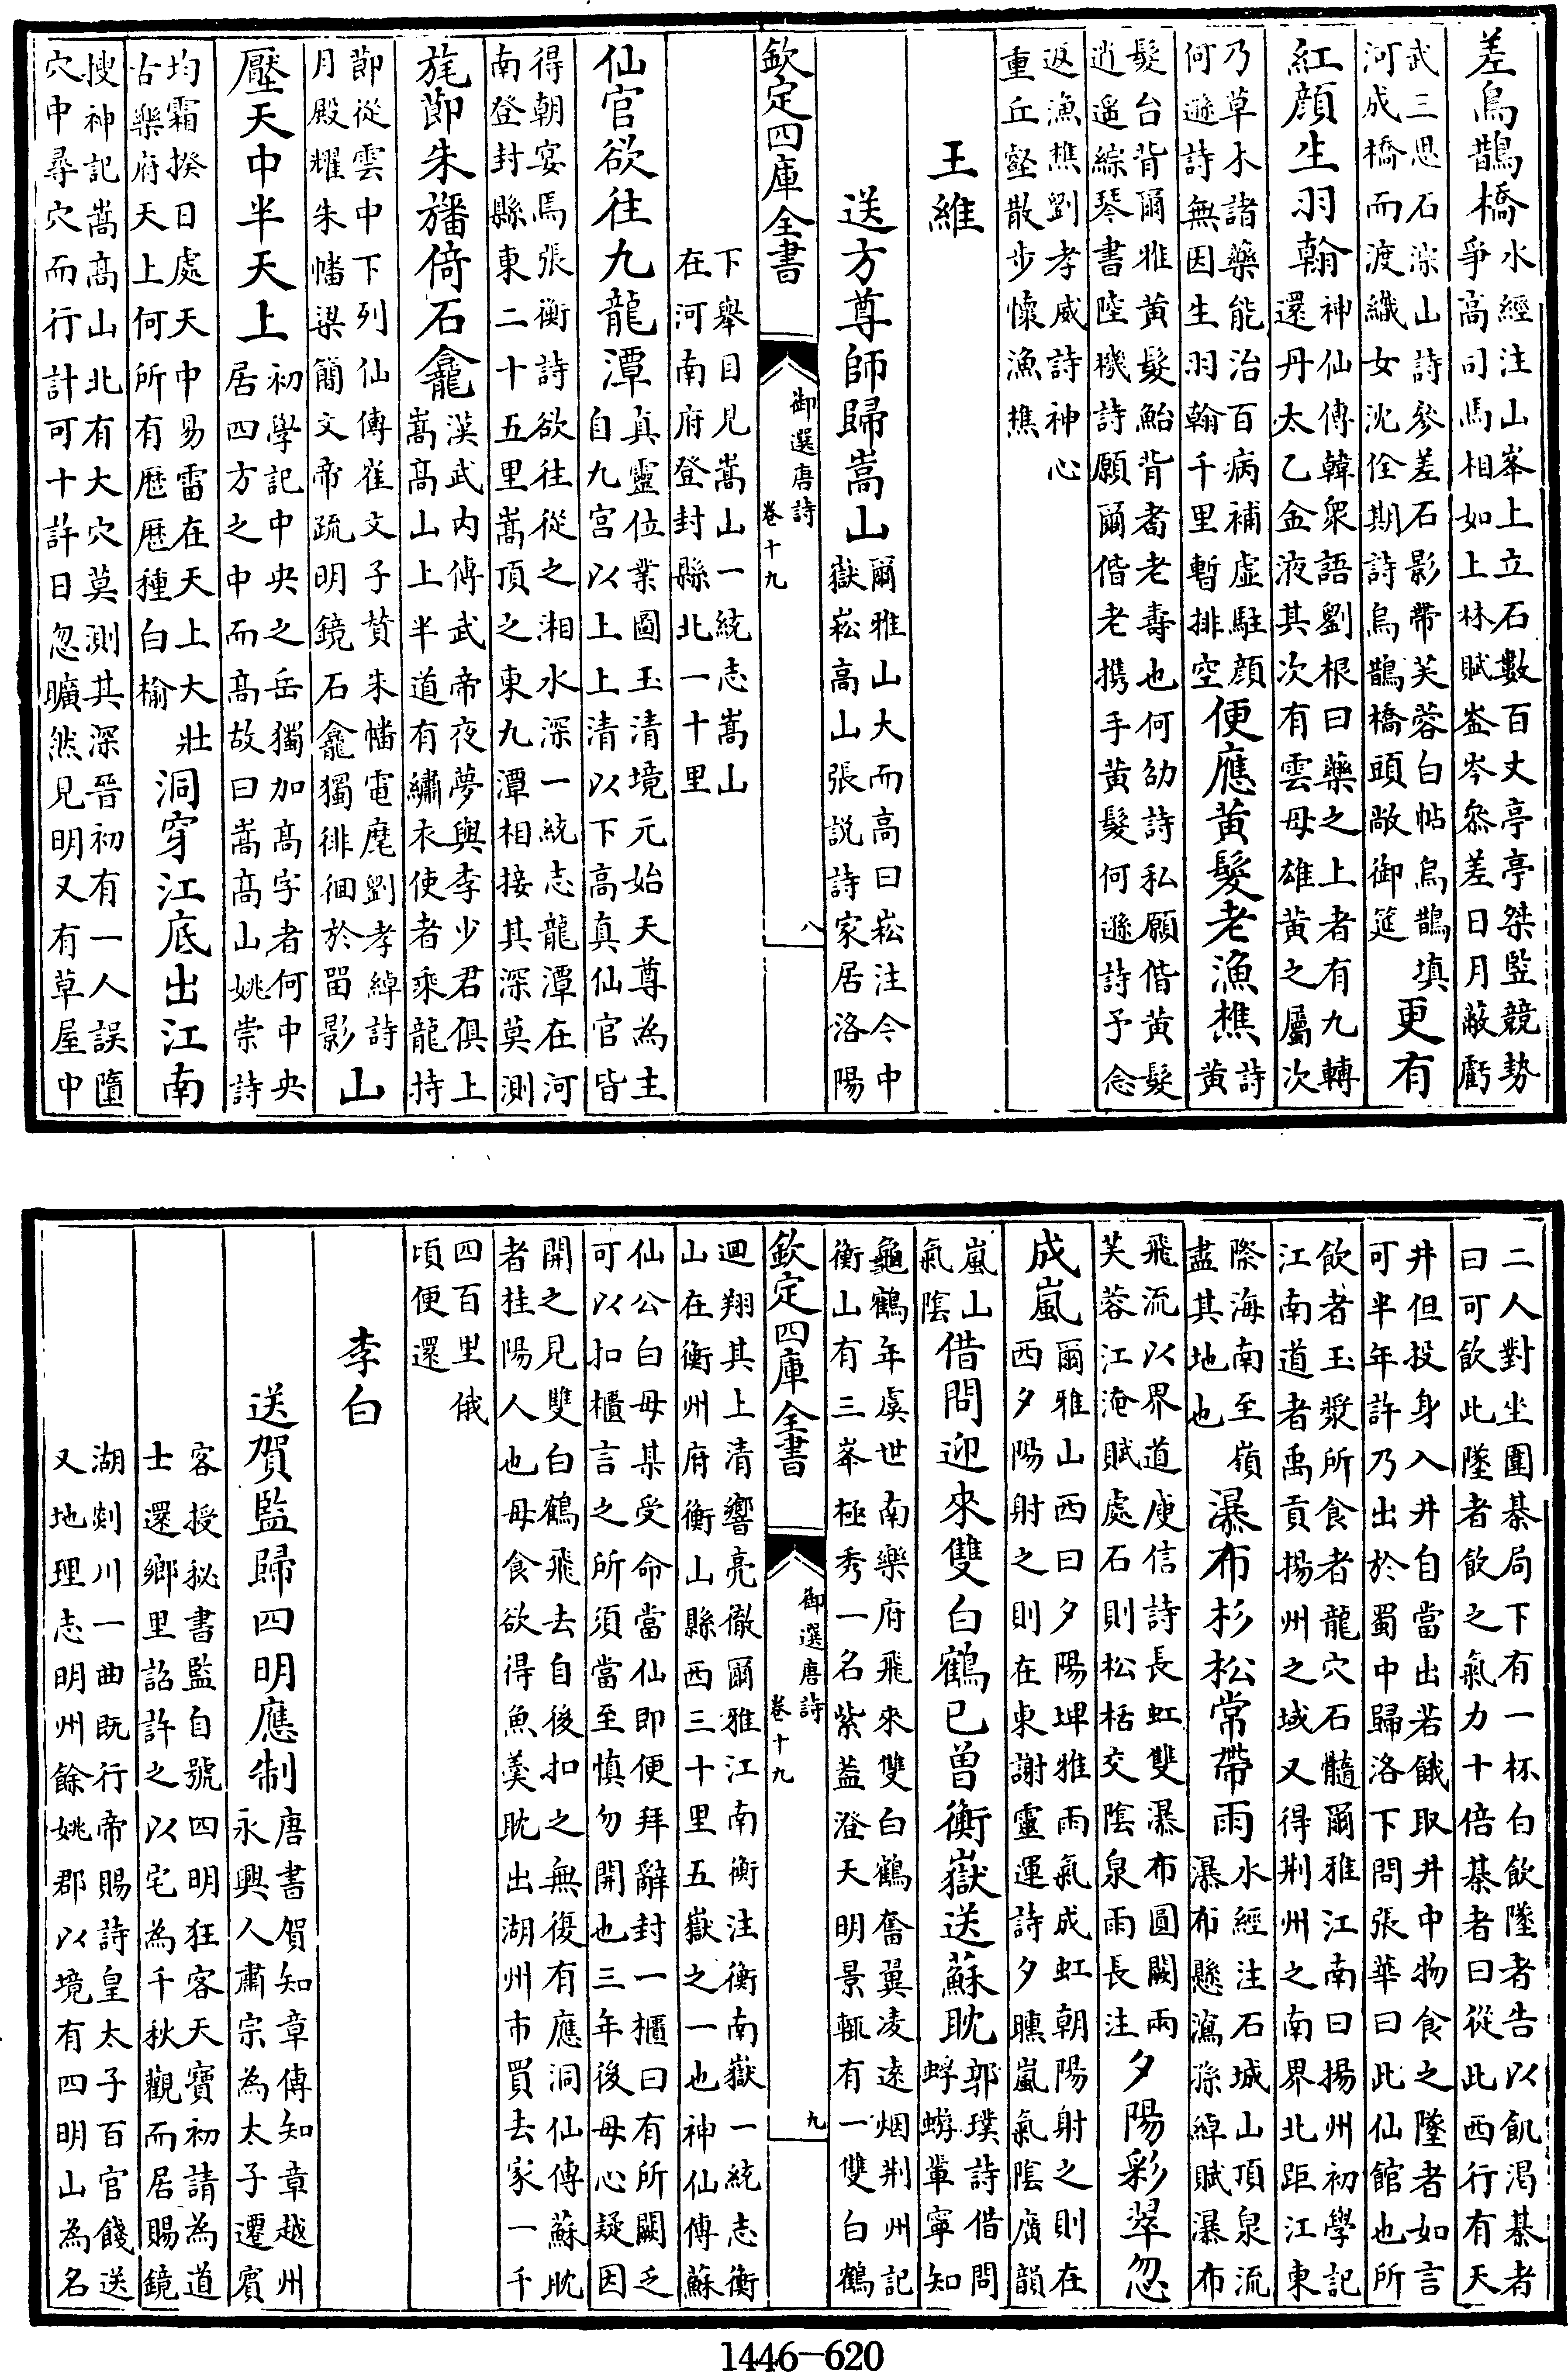 差烏鵲橋水經注山峯上立石數百丈亭亭桀竪競勢爭高司馬相如上林賦崟岑叅差日月蔽虧
武三思石淙山詩參差石影帶芙蓉白帖烏鵲填河成橋而渡織女沈佺期詩烏鵲橋頭敞御筵更有
紅顔生羽翰神仙傳韓衆語劉根曰藥之上者有九轉還丹太乙金液其次有雲母雄黄之屬次
乃草木諸藥能治百病補虛駐顔何遜詩無因生羽翰千里暫排空便應黄髮老漁樵詩黄
髮台背爾雅黄髮鮐背耇老壽也何劭詩私願偕黄髮逍遥綜琴書陸機詩願爾偕老携手黄髮何遜詩予念
返漁樵劉孝威詩神心重丘壑散步懷漁樵
王維
送方尊師歸嵩山爾雅山大而高曰崧注今中嶽崧高山張説詩家居洛陽
欽定四庫全書
御選唐詩
卷十九
八
下舉目見嵩山一統志嵩山在河南府登封縣北一十里
仙官欲往九龍潭真靈位業圖玉清境元始天尊為主自九宫以上上清以下高真仙官皆
得朝宴焉張衡詩欲往從之湘水深一統志龍潭在河南登封縣東二十五里嵩頂之東九潭相接其深莫測
旄節朱旛倚石龕漢武内傳武帝夜夢與李少君俱上嵩髙山上半道有繡衣使者乘龍持
節從雲中下列仙傳崔文子賛朱幡電麾劉孝綽詩月殿耀朱幡梁簡文帝疏明鏡石龕獨徘徊於畱影山
壓天中半天上初學記中央之岳獨加髙字者何中央居四方之中而髙故曰嵩髙山姚崇詩
均霜揆日處天中易雷在天上大壯古樂府天上何所有歴歴種白榆洞穿江底出江南
搜神記嵩髙山北有大穴莫測其深晉初有一人誤墮穴中尋穴而行計可十許日忽曠然見明又有草屋中
二人對坐圍棊局下有一杯白飲墜者告以飢渴棊者曰可飲此墜者飲之氣力十倍棊者曰從此西行有天
井但投身入井自當出若餓取井中物食之墜者如言可半年許乃出於蜀中歸洛下問張華曰此仙館也所
飲者玉漿所食者龍穴石髓爾雅江南曰揚州初學記江南道者禹貢揚州之域又得荆州之南界北距江東
際海南至嶺盡其地也瀑布杉松常帶雨水經注石城山頂泉流瀑布懸瀉孫綽賦瀑布
飛流以界道庾信詩長虹雙瀑布圓闕兩芙蓉江淹賦處石則松栝交陰泉雨長注夕陽彩翠忽
成嵐爾雅山西曰夕陽埤雅雨氣成虹朝陽射之則在西夕陽射之則在東謝靈運詩夕曛嵐氣陰廣韻
嵐山氣陰借問迎來雙白鶴已曾衡嶽送蘇耽郭璞詩借問蜉蝣輩寧知
龜鶴年虞世南樂府飛來雙白鶴奮翼凌遠烟荆州記衡山有三峯極秀一名紫葢澄天明景輒有一雙白鶴
欽定四庫全書
御選唐詩
卷十九
九
迴翔其上清響亮徹爾雅江南衡注衡南嶽一統志衡山在衡州府衡山縣西三十里五嶽之一也神仙傳蘇
仙公白母某受命當仙即便拜辭封一櫃曰有所闕乏可以扣櫃言之所須當至慎勿開也三年後母心疑因
開之見雙白鶴飛去自後扣之無復有應洞仙傳蘇耽者桂陽人也母食欲得魚羮耽出湖州市買去家一千
四百里俄頃便還
李白
送賀監歸四明應制唐書賀知章傳知章越州永興人肅宗為太子遷賓
客授秘書監自號四明狂客天寶初請為道士還鄉里詔許之以宅為千秋觀而居賜鏡
湖剡川一曲既行帝賜詩皇太子百官餞送又地理志明州餘姚郡以境有四明山為名
1446-620